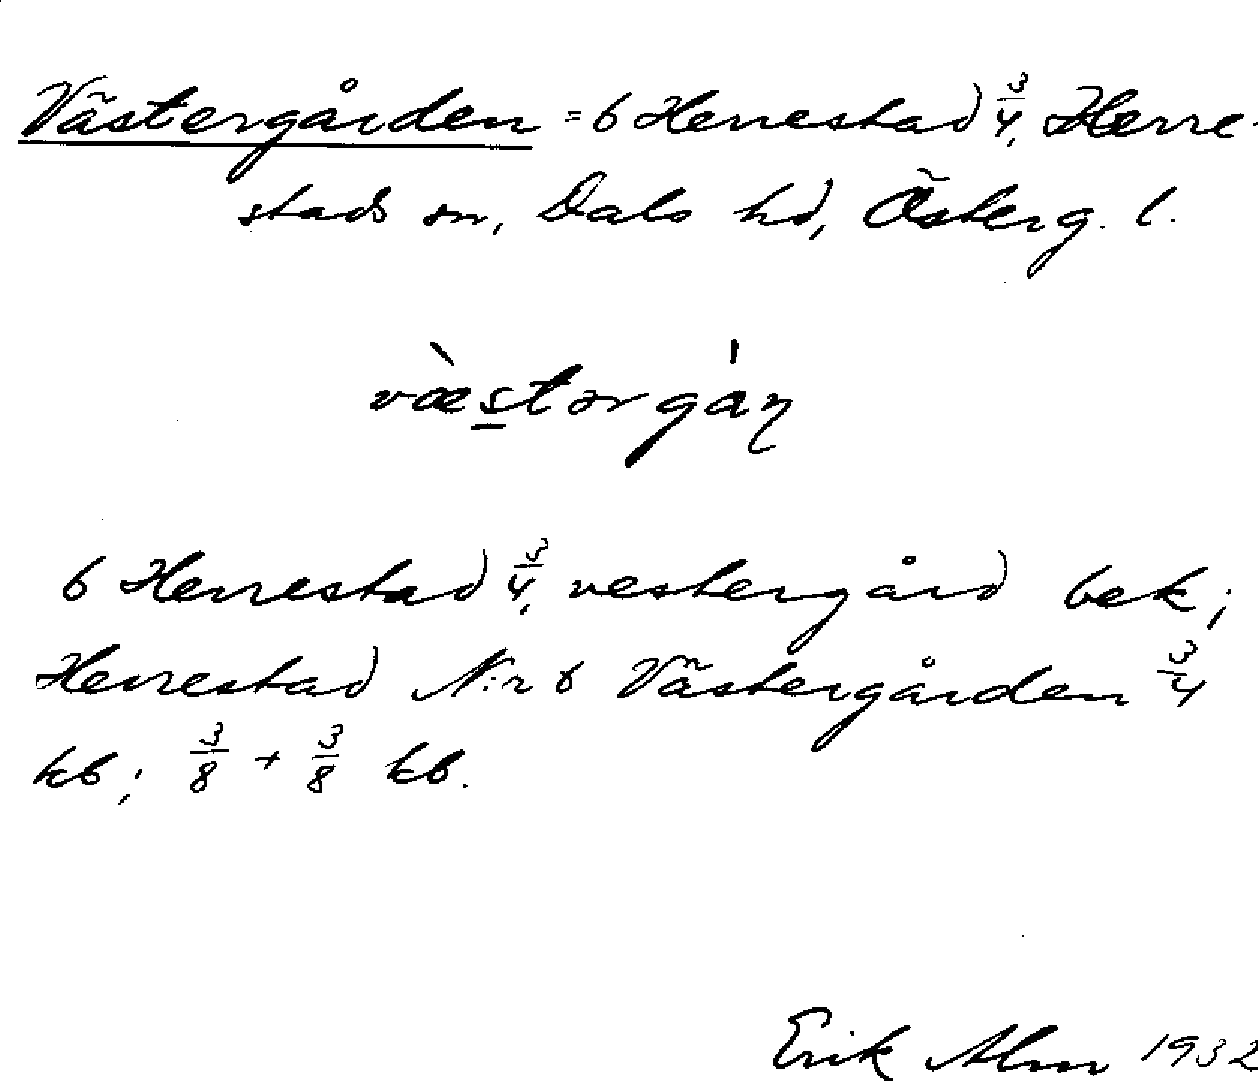 Västergården = 6 Herrestad 3/4, Herre-
stads sn, Dals hd, Österg. l.
væ̀stərgán
6 Herrestad 3/4, vestergård bek;
Herrestad N:r 6 Västergården 3/4
kb; 3/8 + 3/8 kb.
Erik Alm 1932